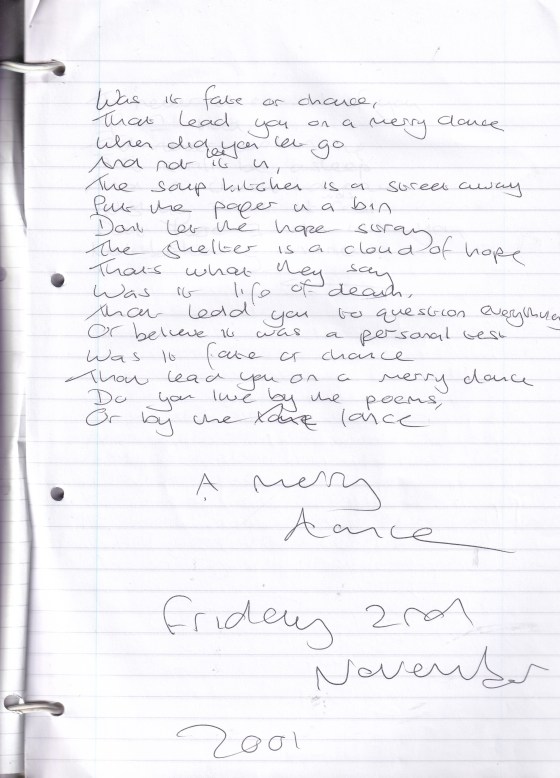 Was it fate or chance,
That lead you on a merry dance
When did you let go
And not let it in,
The soup kitchen is a street away
Put the paper in a bin
Dont let the hope stray
The shelter is a cloud of hope
Thats what they say
Was it life of death,
That lead you to question everything
Or believe it was a personal test
Was it fate or chance
That lead you on a merry dance
Do you live by the poems,
Or by the lance
A merry
dance
Friday 2nd
November
2001